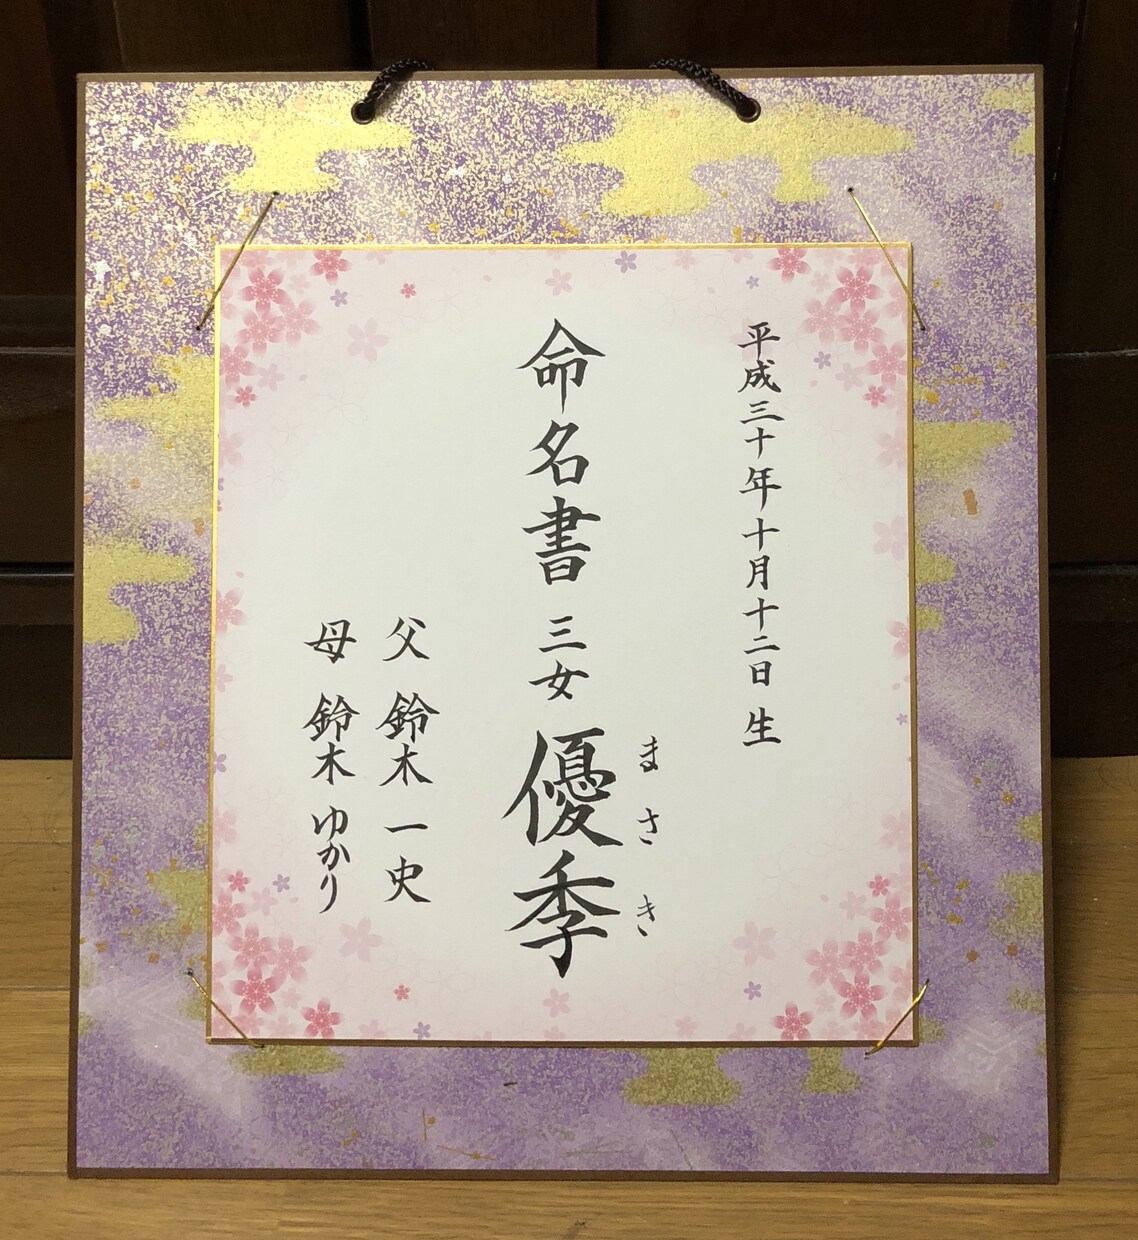 平成三十年十月十二日 生
まさき
命名書 三女 優季
父 鈴木 一史
母 鈴木 ゆかり